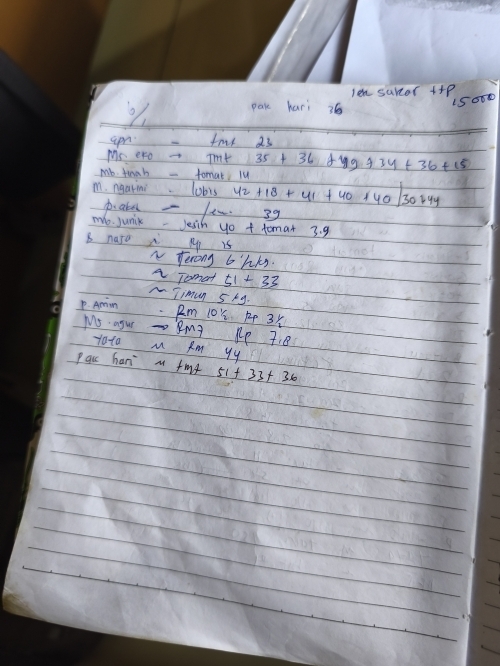 pak hari 36
15000
6/1
apri - tmt 23
Ms. eko → TMT 35 + 36 + 49 + 34 + 36 + 15
Mb. tinah - tomat 14
M. ngatmi - lobis 42 + 18 + 41 + 40 + 40 | 30 + 44
39
mb. junik - jesin 40 + tomat 39
~ Terong 6 1/2 kg.
~ Tomat 51 + 33
~ Timun 5 kg.
P. Amin - RM 10 1/2 Rp 3 1/2
Ms. agus → RM7 Rp 7,8
toto ~ RM 44
Pak hari ~ tmt 51 + 33 + 36